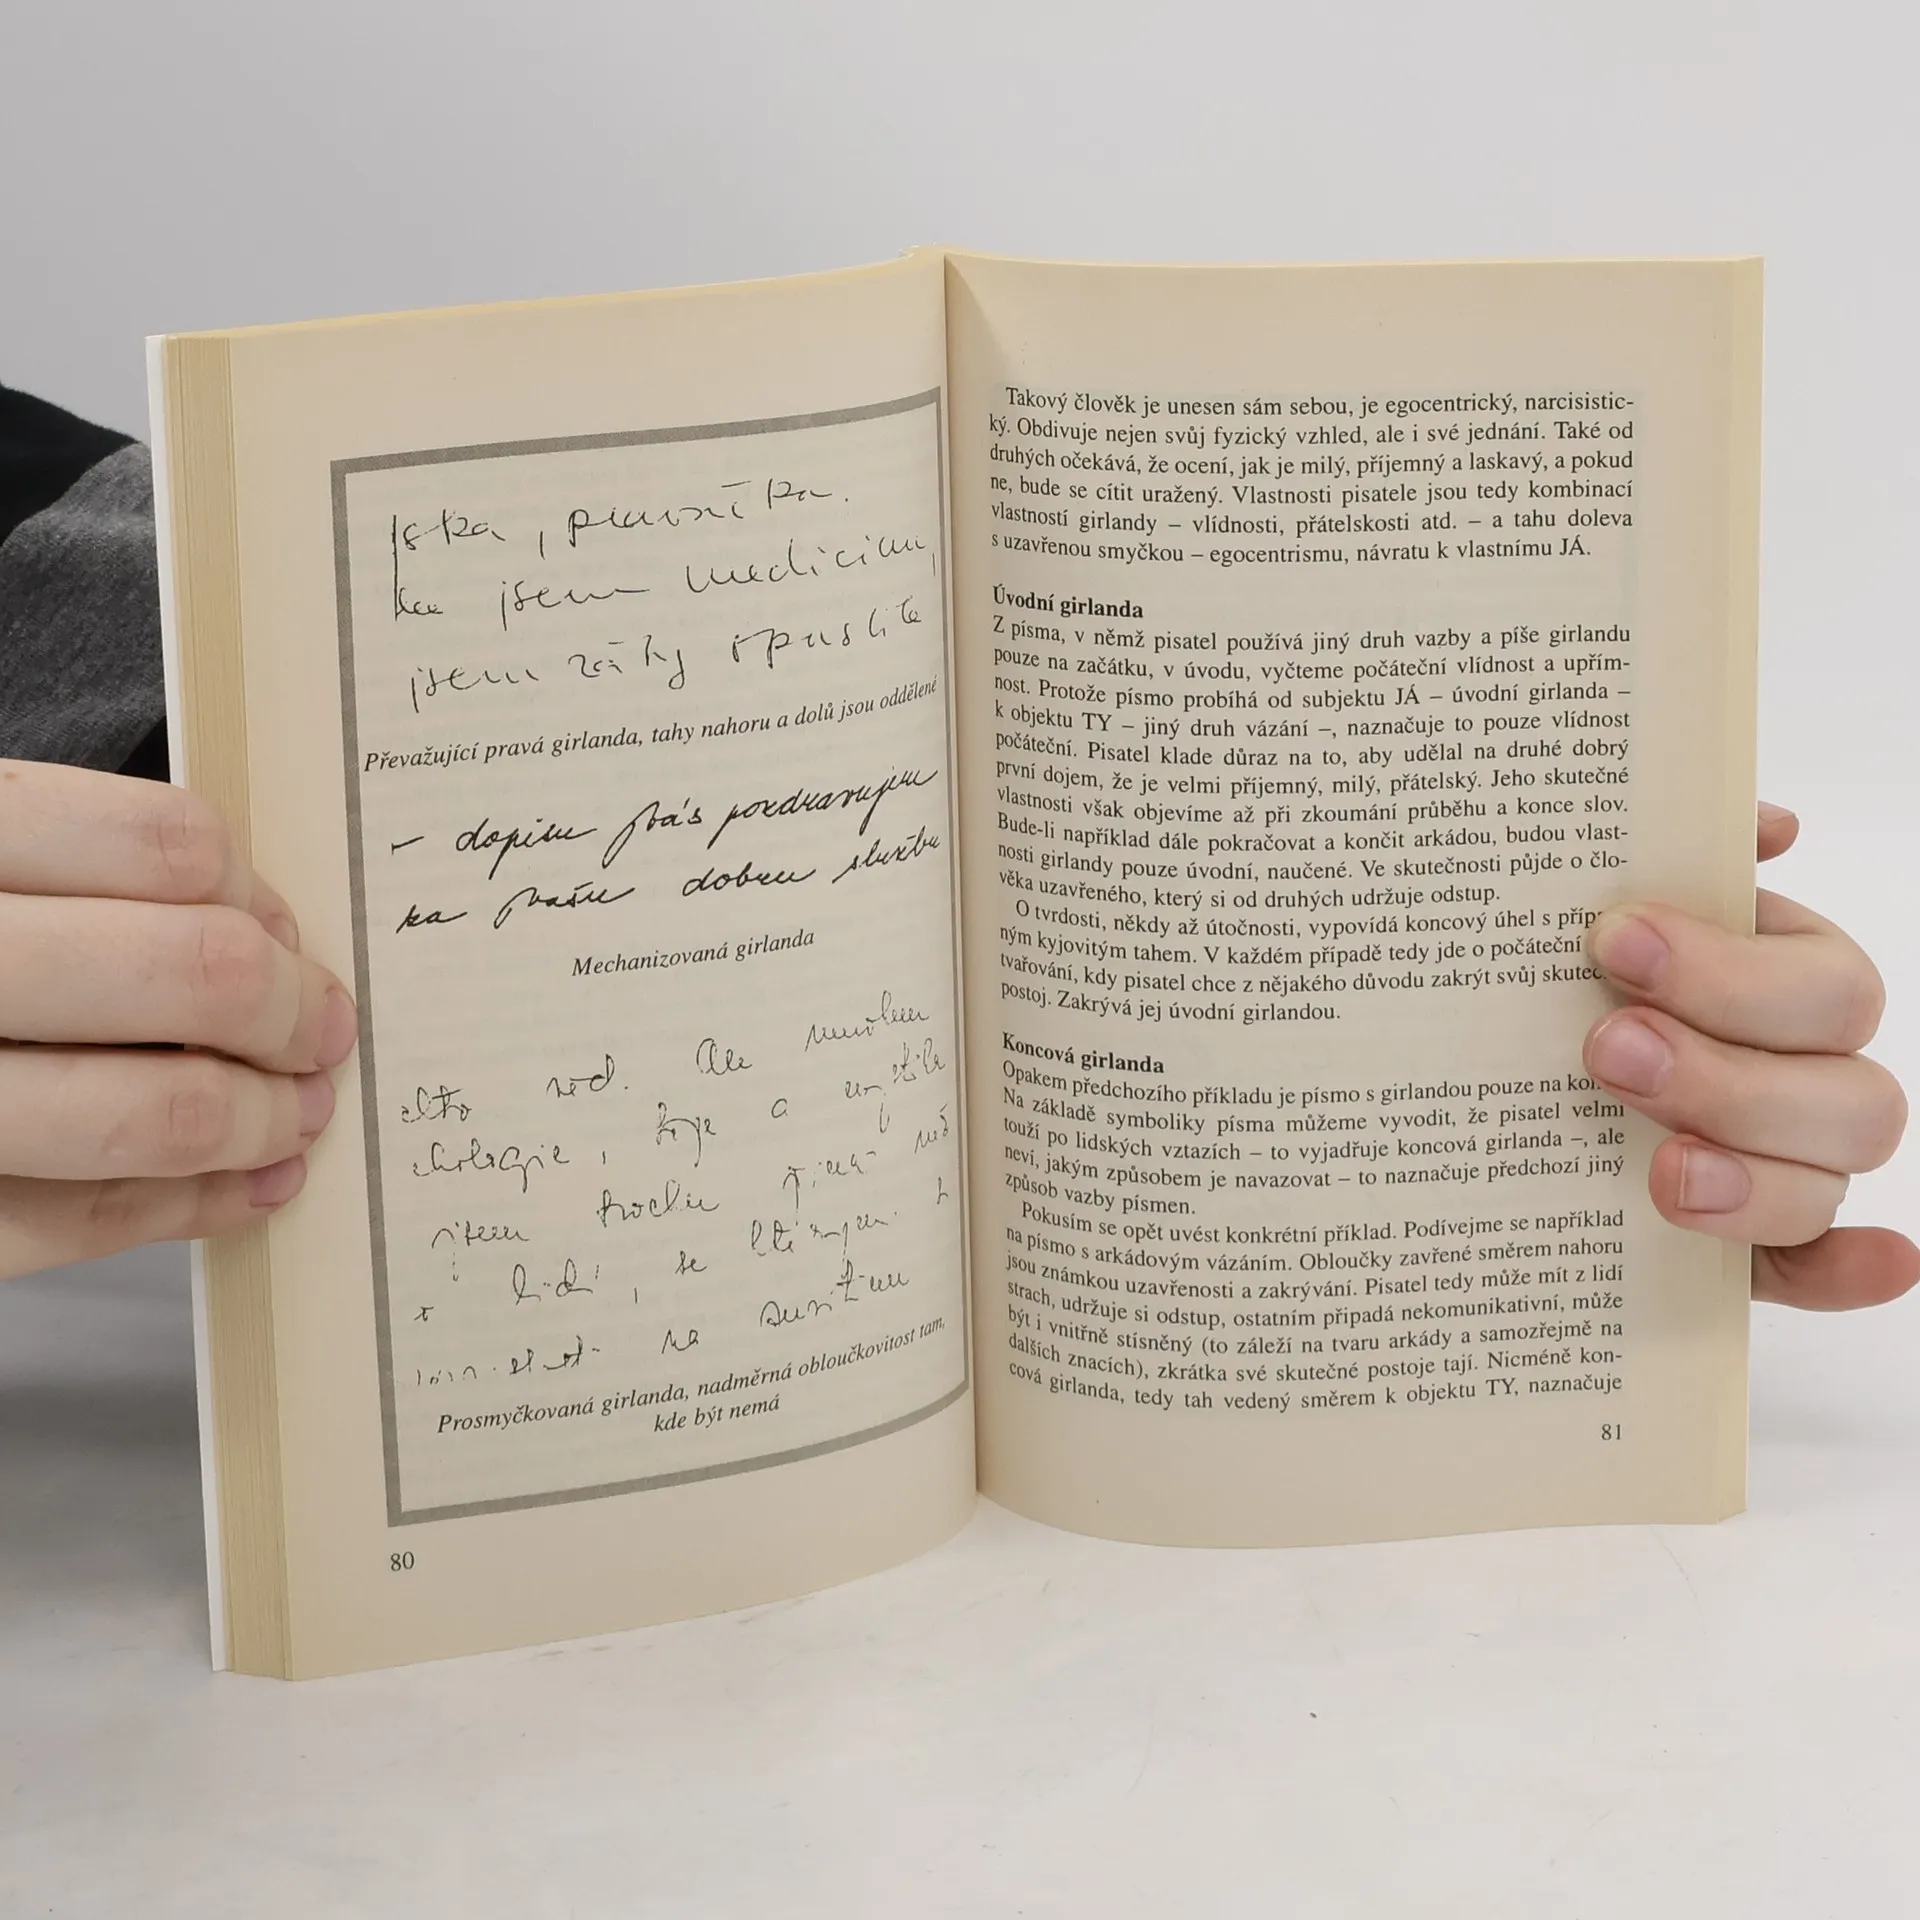 jsem medicinu,
jsem opustila
Převažující pravá girlanda, tahy nahoru a dolů jsou oddělené
– dopisu Vás pozdravujeme
za Vaši dobrou službu
Mechanizovaná girlanda
rád. Ale
, a
jsem trochu
lidí, se
na
Prosmyčkovaná girlanda, nadměrná obloučkovitost tam,
kde být nemá
80
Takový člověk je unesen sám sebou, je egocentrický, narcisistic-
ký. Obdivuje nejen svůj fyzický vzhled, ale i své jednání. Také od
druhých očekává, že ocení, jak je milý, příjemný a laskavý, a pokud
ne, bude se cítit uražený. Vlastnosti pisatele jsou tedy kombinací
vlastností girlandy – vlídnosti, přátelskosti atd. – a tahu doleva
s uzavřenou smyčkou – egocentrismu, návratu k vlastnímu JÁ.
Úvodní girlanda
Z písma, v němž pisatel používá jiný druh vazby a píše girlandu
pouze na začátku, v úvodu, vyčteme počáteční vlídnost a upřím-
nost. Protože písmo probíhá od subjektu JÁ – úvodní girlanda –
k objektu TY – jiný druh vázání –, naznačuje to pouze vlídnost
počáteční. Pisatel klade důraz na to, aby udělal na druhé dobrý
první dojem, že je velmi příjemný, milý, přátelský. Jeho skutečné
vlastnosti však objevíme až při zkoumání průběhu a konce slov.
Bude-li například dále pokračovat a končit arkádou, budou vlast-
nosti girlandy pouze úvodní, naučené. Ve skutečnosti půjde o člo-
věka uzavřeného, který si od druhých udržuje odstup.
O tvrdosti, někdy až útočnosti, vypovídá koncový úhel s příp
ným kyjovitým tahem. V každém případě tedy jde o počáteční
tvařování, kdy pisatel chce z nějakého důvodu zakrýt svůj skuteč
postoj. Zakrývá jej úvodní girlandou.
Koncová girlanda
Opakem předchozího příkladu je písmo s girlandou pouze na kon
Na základě symboliky písma můžeme vyvodit, že pisatel velmi
touží po lidských vztazích – to vyjadřuje koncová girlanda –, ale
neví, jakým způsobem je navazovat – to naznačuje předchozí jiný
způsob vazby písmen.
Pokusím se opět uvést konkrétní příklad. Podívejme se například
na písmo s arkádovým vázáním. Obloučky zavřené směrem nahoru
jsou známkou uzavřenosti a zakrývání. Pisatel tedy může mít z lidí
strach, udržuje si odstup, ostatním připadá nekomunikativní, může
být i vnitřně stísněný (to záleží na tvaru arkády a samozřejmě na
dalších znacích), zkrátka své skutečné postoje tají. Nicméně kon-
cová girlanda, tedy tah vedený směrem k objektu TY, naznačuje
81